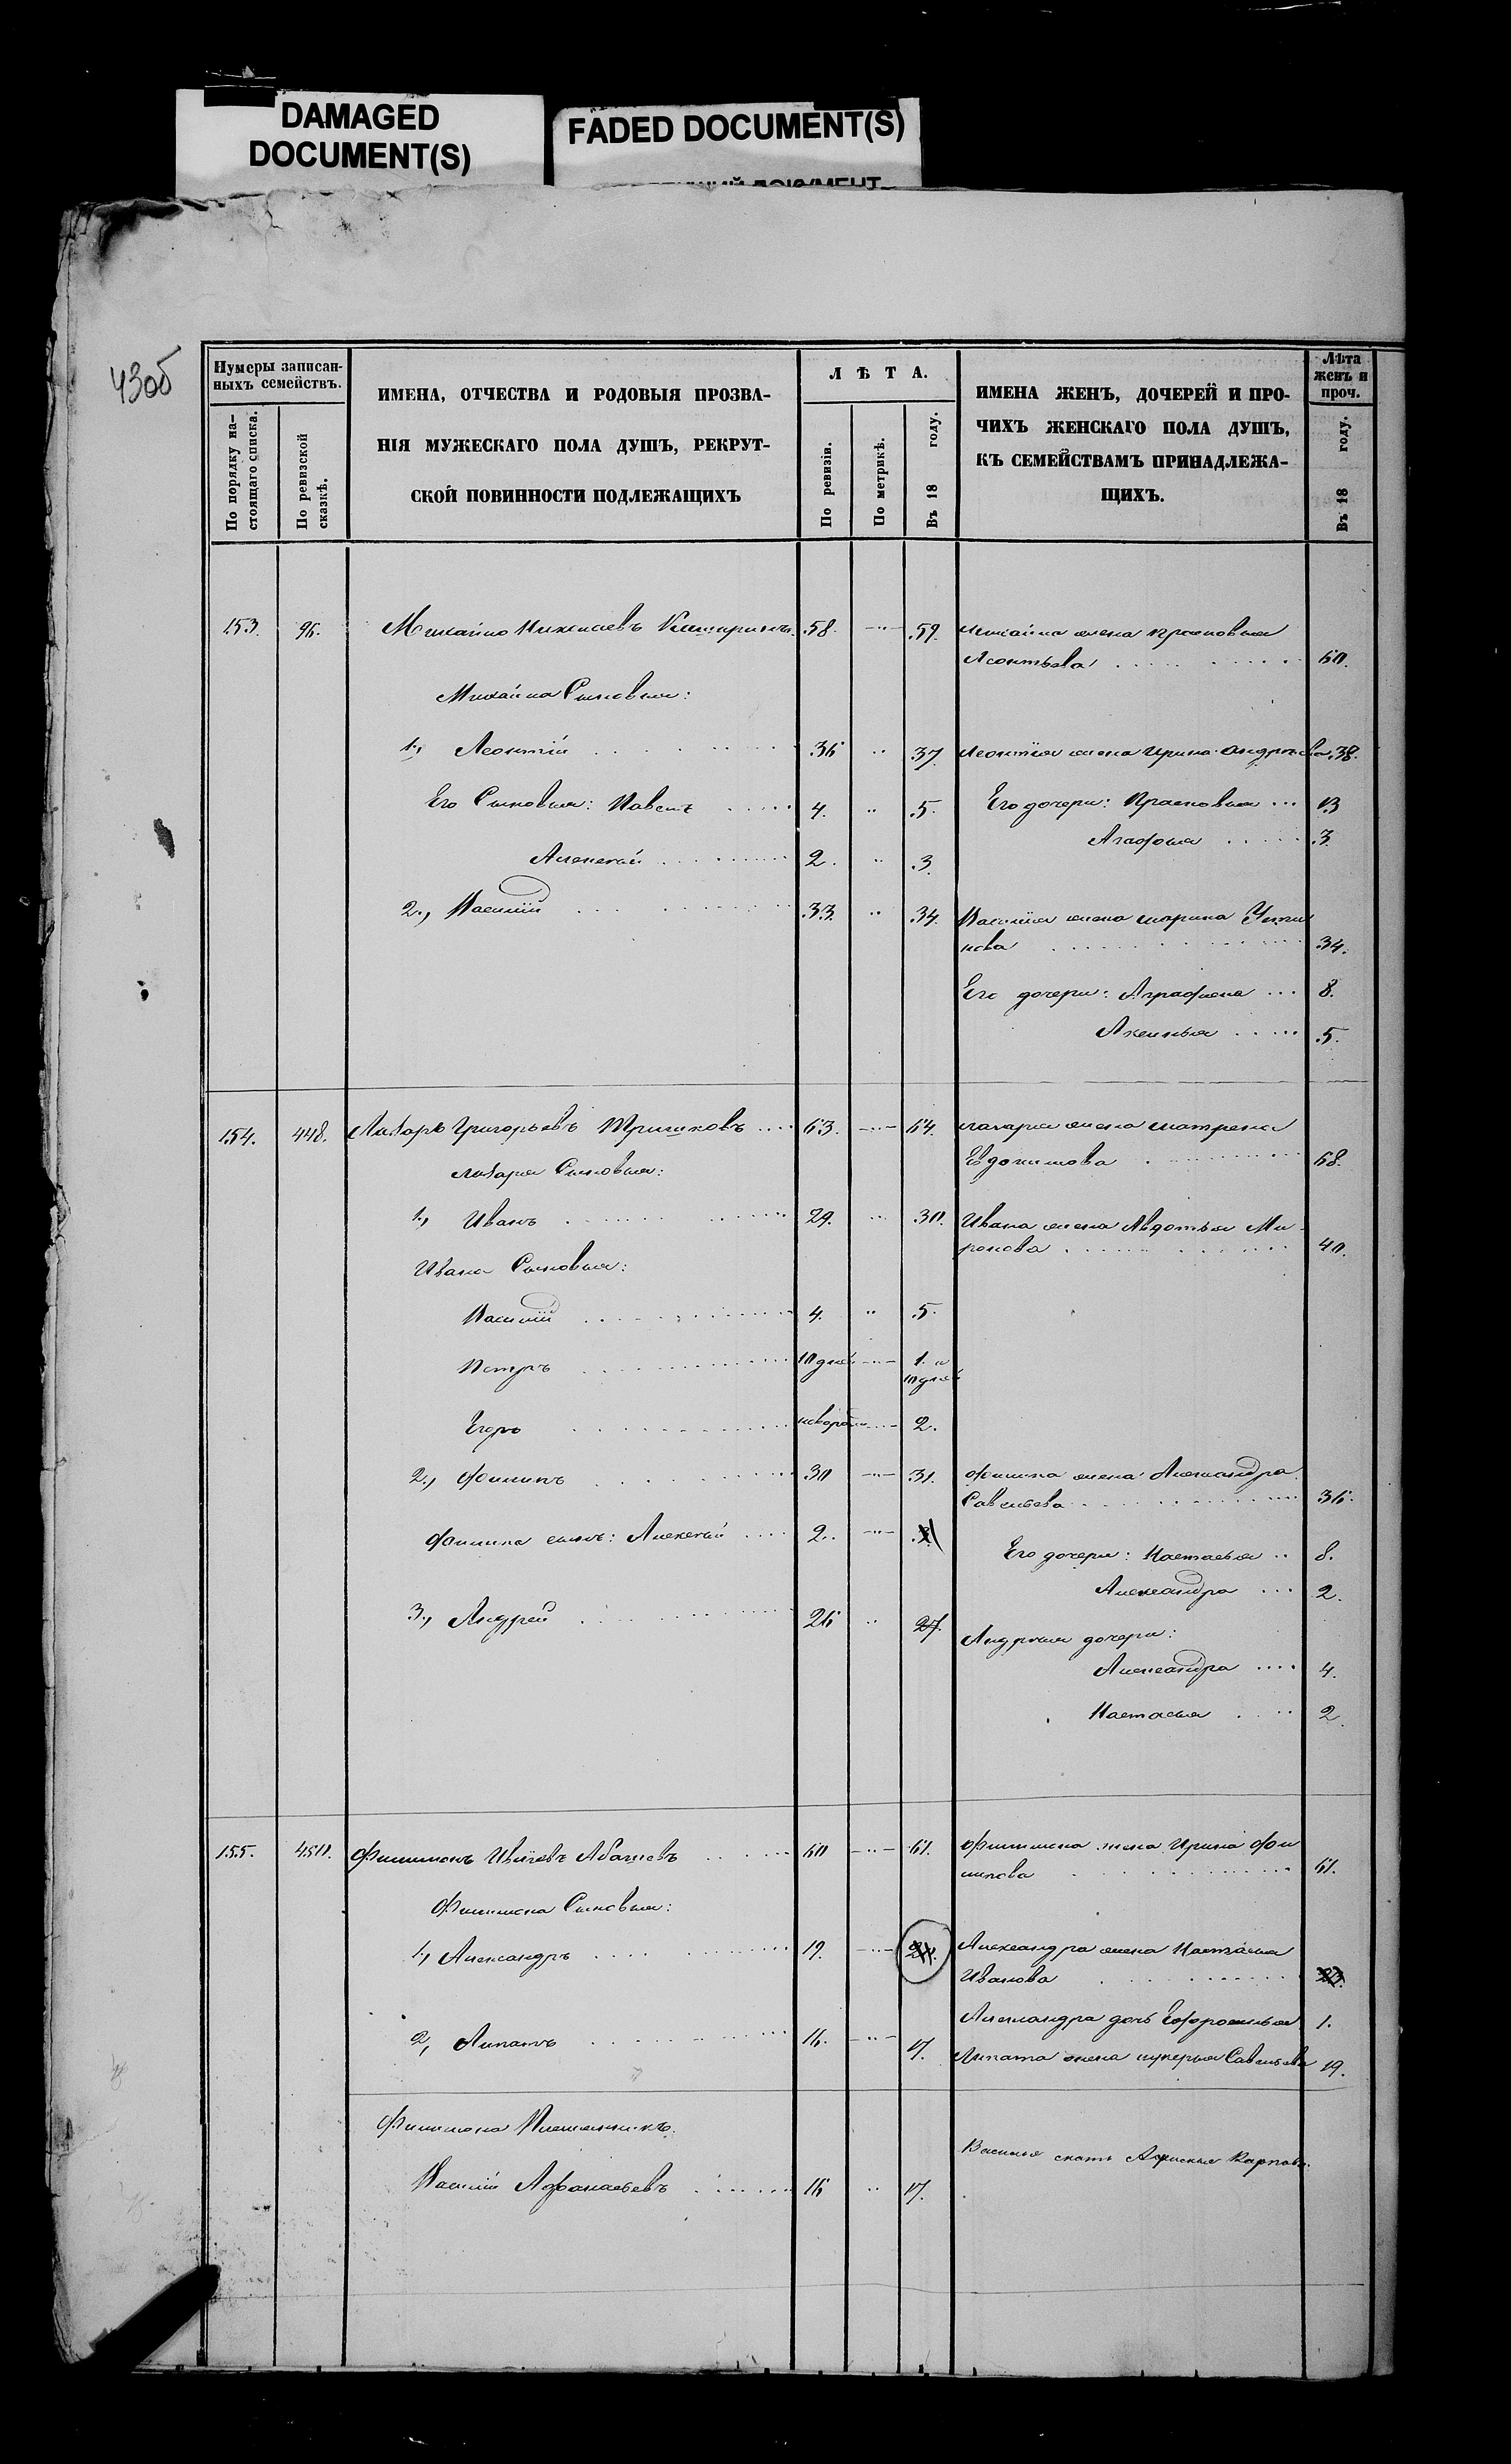 DAMAGED
DOCUMENT(S)
FADED DOCUMENT(S)
43об
Нумеры записан-
ныхъ семействъ.
По порядку на-
стоящаго списка.
По ревизской
сказкѣ.
ИМЕНА, ОТЧЕСТВА И РОДОВЫЯ ПРОЗВА-
НІЯ МУЖЕСКАГО ПОЛА ДУШЪ, РЕКРУТ-
СКОЙ ПОВИННОСТИ ПОДЛЕЖАЩИХЪ
ЛѢТА.
По ревизіи.
По метрикѣ.
Въ 18 году.
ИМЕНА ЖЕНЪ, ДОЧЕРЕЙ И ПРО-
ЧИХЪ ЖЕНСКАГО ПОЛА ДУШЪ,
КЪ СЕМЕЙСТВАМЪ ПРИНАДЛЕЖА-
ЩИХЪ.
Лѣта
женъ и
проч.
Въ 18 году.
153. 96. Михайло 58. 59. Михайла жена Прасковья
Леонтьева 60.
Михайла Сыновья:
1., Леонтій 36 37. Леонтія жена Ирина Андреева 38.
Его Сыновья: Павелъ 4. 5. Его дочери: Прасковья 13
Агафья 3.
Алексей 2. 3.
2., Василій 33 34. Василія жена Марина Усти
нова 34.
Его дочери: Аграфена 8.
Аксинья 5.
154. 448. Лазарь Григорьевъ Тришковъ 63. 64. Лазаря жена Матрена
Евдокимова 68.
Лазаря Сыновья:
1., Иванъ 29. 30. Ивана жена Авдотья Ми-
ронова 40.
Ивана Сыновья:
Василій 4. 5.
Петръ 10 дней 1. и
10 дней
Егоръ 2.
2., Филипъ 30 31. Филипа жена Александра
Савельева 36.
Филипа сынъ: Алексей 2. Его дочери: Настасья 8.
Александра 2.
3., Андрей 26 27. Андрея дочери:
Александра 4.
Настасья 2.
155. 450. Филимонъ Абашевъ 60 61. Филимона жена Ирина Фи
липова 61.
Филимона Сыновья:
1., Александръ 19. Александра жена Настасья
Иванова
Александра дочь Ефросинья 1.
2, Липатъ 16. 17. Липата жена Лукерья Савельева 19.
Филимона Племянникъ.
Василій Афанасьевъ 16 17. Василья мать Карпова.